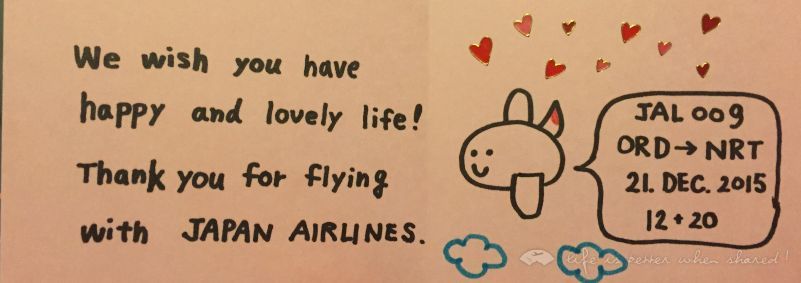 We wish you have
happy and lovely life!
Thank you for flying
with JAPAN AIRLINES.
JAL 009
ORD→NRT
21. DEC. 2015
12+20
life is better when shared!